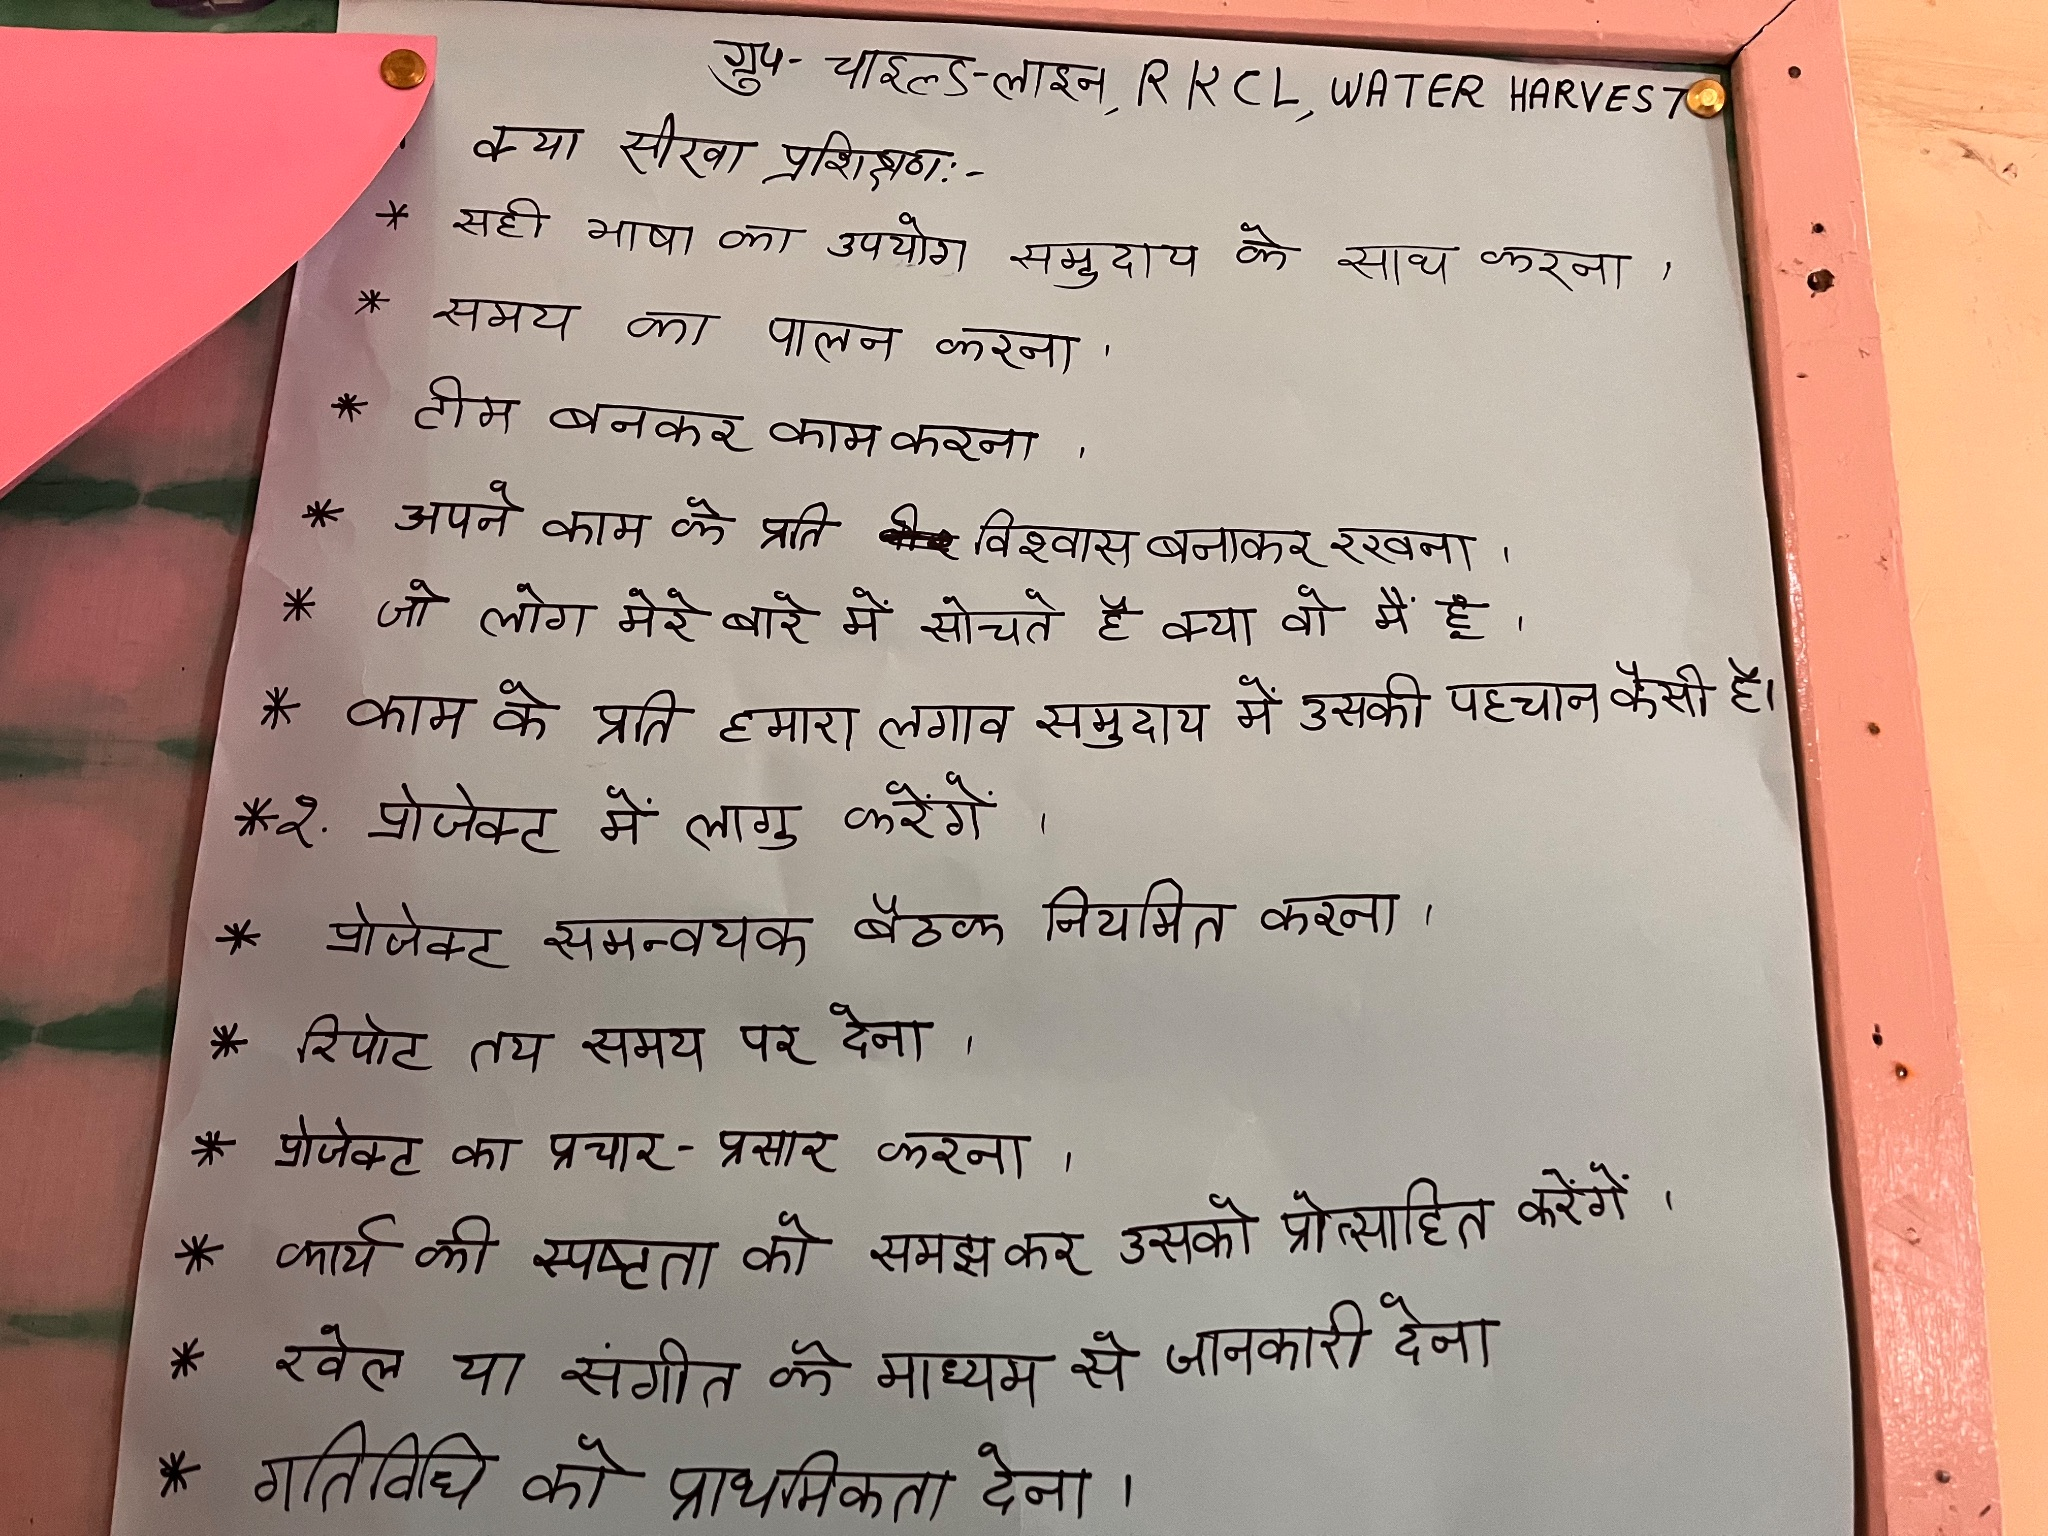 ग्रुप- चाइल्ड-लाइन, RKCL, WATER HARVEST
क्या सीखा प्रशिक्षण:-
* सही भाषा का उपयोग समुदाय के साथ करना ।
* समय का पालन करना ।
* टीम बनकर काम करना ।
* अपने काम के प्रति विश्वास बनाकर रखना ।
* जो लोग मेरे बारे में सोचते है क्या वो मैं हूँ ।
* काम के प्रति हमारा लगाव समुदाय में उसकी पहचान कैसी है।
*२. प्रोजेक्ट में लागु करेंगें ।
* प्रोजेक्ट समन्वयक बैठक नियमित करना ।
* रिपोट तय समय पर देना ।
* प्रोजेक्ट का प्रचार-प्रसार करना ।
* कार्य की स्पष्टता को समझ कर उसको प्रोत्साहित करेंगें ।
* खेल या संगीत के माध्यम से जानकारी देना
* गतिविधि को प्राथमिकता देना ।